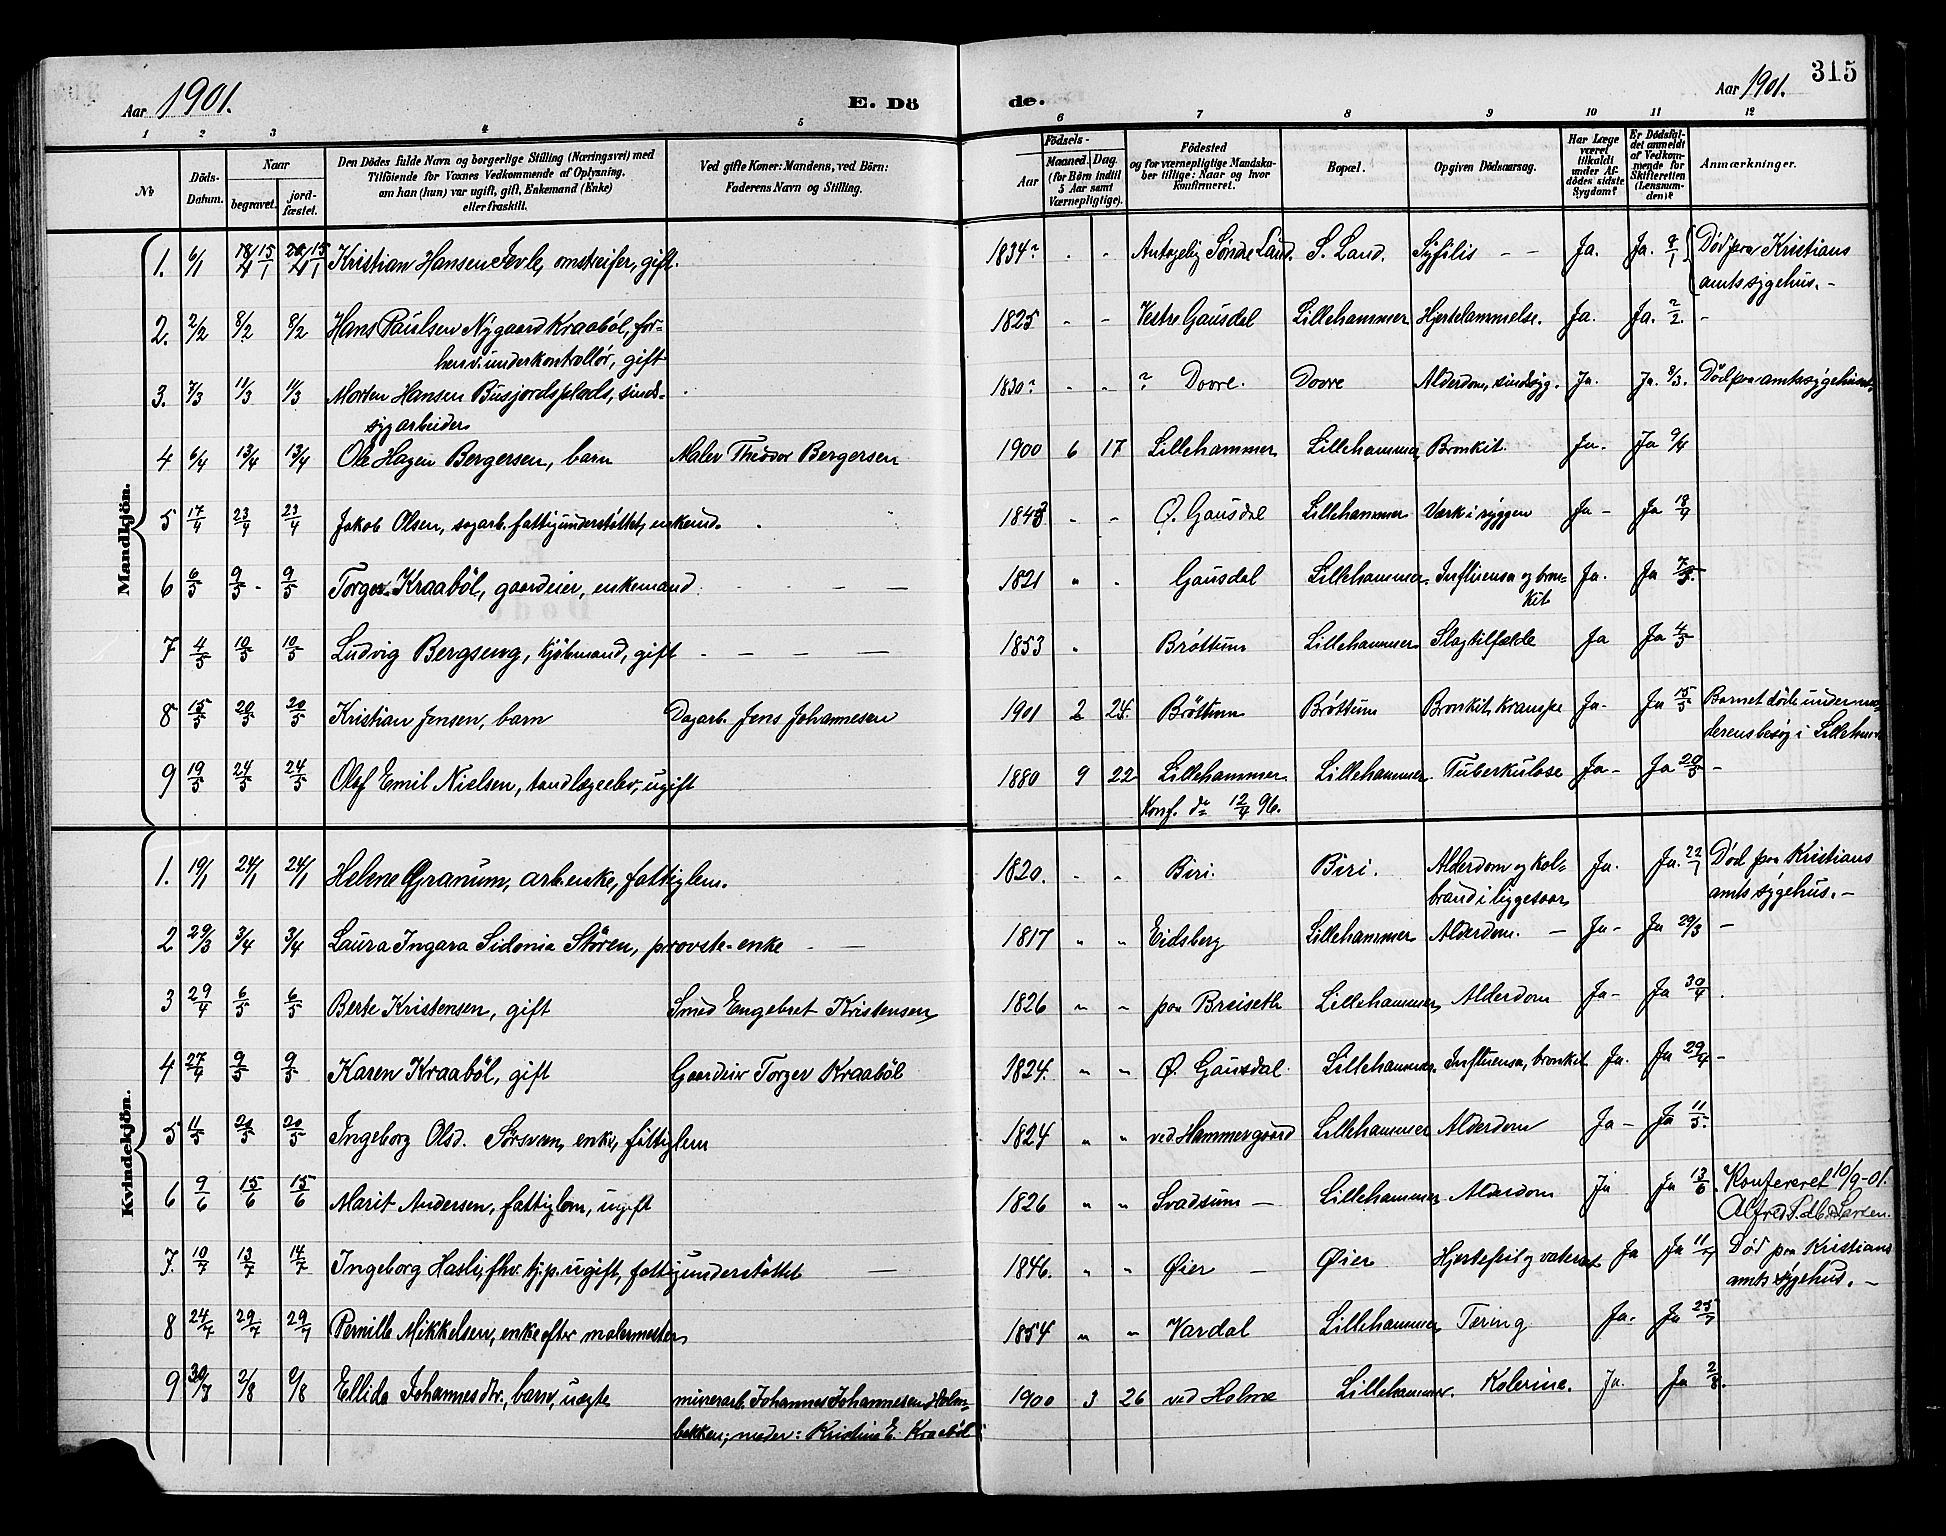 Aar 1901. E. Dö de. Aar 1901. 315
1 2 3 4 5 6 7 8 9 10 11 12
No
Döds-Datum.
Naar
begravet.
jord-fæstet.
Den Dödes fulde Navn og borgerlige Stilling (Næringsvei) med
Tilföiende for Voxnes Vedkommende af Oplysning,
om han (hun) var ugift, gift, Enkemand (Enke)
eller fraskilt.
Ved gifte Koner: Mandens, ved Börn:
Faderens Navn og Stilling.
Födsels-
Aar
Maaned. Dag.
(for Börn indtil
5 Aar samt
Værnepligtige).
Födested
og for værnepligtige Mandska-
ber tillige: Naar og hvor
konfirmeret.
Bopæl.
Opgiven Dödsaarsag.
Har Læge
været
tilkaldt
under Af-
dödes sidste
Sygdom?
Er Dödsfal-
det anmeldt
af Vedkom-
mende for
Skifteretten
(Lensman-
den)?
Anmærkninger.
Mandkjön.
1. 6/1 15/1 15/1 Kristian Hansen Fevle, omstreifer, gift. 1834? Antagelig Søndre Land. S. Land. Syfilis — — Ja. Ja. 9/1 Død paa Kristians
amts sygehus. -
2. 2/2 8/2 8/2 Hans Paulsen Nygaard Kraaböl, for- 1825 - - Vestre Gausdal Lillehammer Hjertelammelse. Ja. Ja. 2/2. -
henv. underkontrollør, gift
3. 7/3 11/3 11/3 Morten Hansen Busjordsplads, sinds- 1830? - - ? Dovre. Dovre Alderdom, sindssyg. Ja. Ja. 8/3. Død paa amtssygehuset
syg arbeider
4 6/4 13/4 13/4 Ole Hagen Bergersen, barn Maler Theodor Bergersen 1900 6 17 Lillehammer Lillehammer Bronkit. Ja. Ja 9/4
5 17/4 23/4 23/4 Jakob Olsen, sagarb. fattigunderstöttet, enkemd. Ø. Gausdal Lillehammer Værk i ryggen Ja - Ja 18/4
6 6/5 9/5 - 9/5 Torger Kraaböl, gaardeier, enkemand 1821 " . Gausdal Lillehammer. Influensa og bron- Ja. Ja 7/5.
kit
7 4/5 10/5 10/5 Ludvig Bergseng, kjöbmand, gift 1853 " Brøttum Lillehammer Slagtilfælde Ja Ja 4/5
8 15/5 20/5 20/5 Kristian Jensen, barn Dagarb. Jens Johannesen 1901 2 24. Brøttum Brøttum Bronkit, krampe Ja- Ja 15/5 Barnet døde under mo-
derens besøg i Lilleham.
9 19/5 24/5 24/5 Olaf Emil Nielsen, tandlægeelev, ugift 1880 9 22 Lillehammer Lillehammer. Tuberkulose Ja- Ja 20/5 -
Konf. do 12/4 96.
Kvindekjön.
1. 19/1 24/1 24/1 Helene Granum, arb.enke, fattiglem. 1820. - - Biri. Biri. Alderdom og kol- Ja. Ja. 22/1 Død paa Kristians
brand i liggesaar amts sygehus. -
2 29/3 3/4 3/4 Laura Ingara Sidonia Stören, provste-enke 1817 " " Eidsberg Lillehammer Alderdom. — Ja- Ja 29/3 -
3 29/4 6/5 6/5 Berte Kristensen, gift Smed Engebret Kristensen 1826 " " paa Breiseth Lillehammer Alderdom Ja- Ja 30/4
4 27/4 9/5 9/5 Karen Kraaböl, gift Gaardeier Torger Kraaböl 1824. " " Ø Gausdal. Lillehammer. Influensa, bronkit Ja. Ja 29/4 -
5 11/5 20/5 20/5 Ingeborg Olsd. Sörsveen, enke, fattiglem 1824 " " ved Hammergaard Lillehammer Alderdom Ja - Ja 11/5-
6 9/6 15/6 15/6 Marit Andersen, fattiglem, ugift 1826 " " Svadsum — Lillehammer Alderdom Ja Ja 13/6. Konfereret 10/9-01.
7. 10/7 13/7 14/7 Ingeborg Haslie, fhv. tj.p. ugift, fattigunderstöttet 1846. " " Øier — Øier Hjertefeil og vatersot Ja Ja 11/7 Død paa Kristians
amts sygehus. -
8 24/7 29/7 29/7 Pernille Mikkelsen, enke efter malermester 1854 " " Vardal Lillehammer Tæring Ja. Ja 25/7
9 30/7 2/8 2/8 Ellida Johannesdtr., barn, uægte minerarb. Johannes Johannesen Holm- 1900 3 26 ved Holme Lillehammer. Kolerine. Ja. Ja 2/8.
bakken; moder: Kristine E. Kraaböl